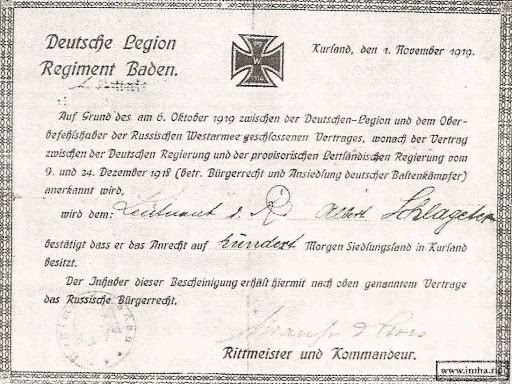 Deutsche Legion
Regiment Baden.
Kurland, den 1. November 1919.
W
Auf Grund des am 6. Oktober 1919 zwischen der Deutschen-Legion und dem Ober-
befehlshaber der Russischen Westarmee geschlossenen Vertrages, wonach der Vertrag
zwischen der Deutschen Regierung und der provisorischen Lettländischen Regierung vom
9. und 24. Dezember 1918 (betr. Bürgerrecht und Ansiedlung deutscher Baltenkämpfer)
anerkannt wird,
wird dem: Leutnant d. R. Albert Schlageter
bestätigt dass er das Anrecht auf hundert Morgen Siedlungsland in Kurland
besitzt.
Der Inhaber dieser Bescheinigung erhält hiermit nach oben genanntem Vertrage
das Russische Bürgerrecht.
Rittmeister und Kommandeur.